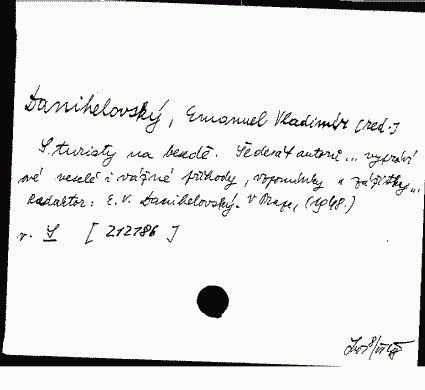 Danihelovský, Emanuel Vladimír [red.]
S turisty na besedě. Šedesát autorů ... vypráví
své veselé i vážné příhody, vzpomínky a zážitky...
Redaktor: E. V. Danihelovský. V Praze, (1948.)
v. S [212186]